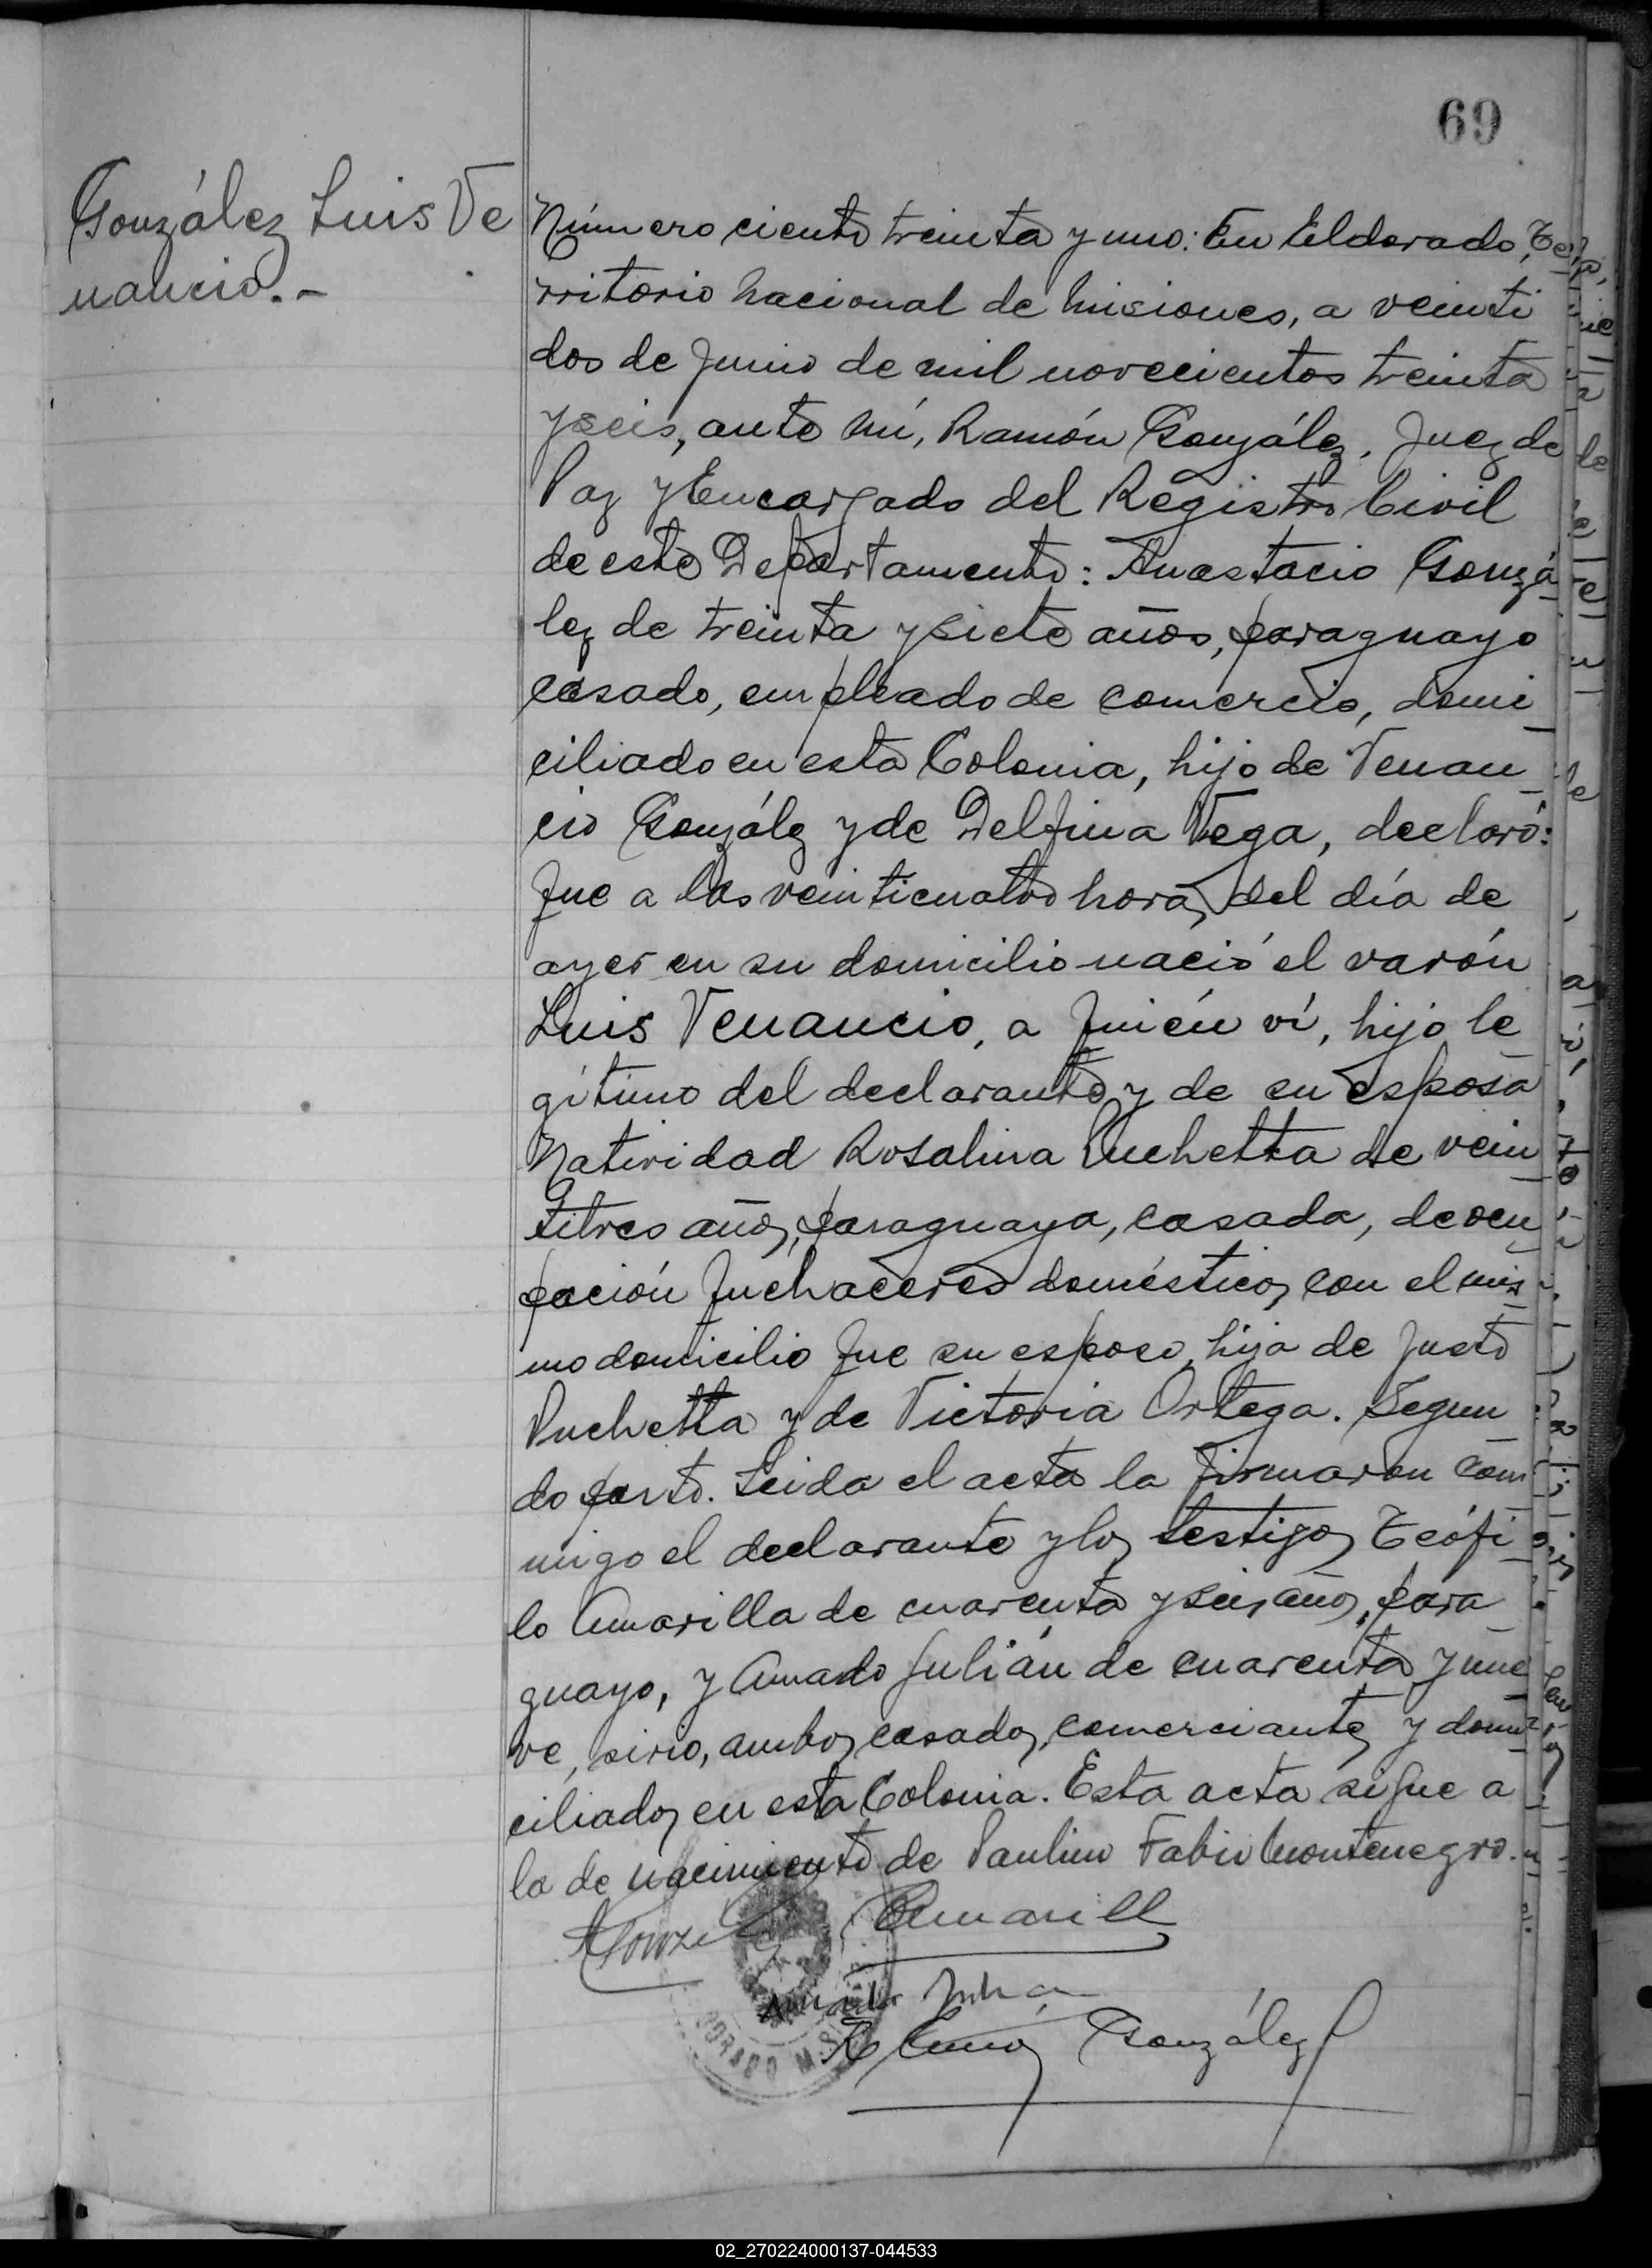 69
González Luis Ve
nancio.-
Número ciento treinta y uno: En Eldorado, Te
rritorio nacional de Misiones, a veinti
dos de Junio de mil novecientos treinta
y seis, ante mí, Ramón González, Juez de
Paz y Encargado del Registro Civil
de este Departamento: Anastacio Gonzá
lez de treinta y siete años, paraguayo
casado, empleado de comercio, domi
ciliado en esta Colonia, hijo de Venan
cio González y de Delfina Vega, declaró:
Que a las veinticuatro horas del día de
ayer en su domicilio nació el varón
Luis Venancio, a quién ví, hijo le
gítimo del declarante y de su esposa
Natividad Rosalina Puchetta de vein
titres años, paraguaya, casada, de ocu
pación quehaceres domésticos con el mis
mo domicilio que su esposo, hija de Justo
Puchetta y de Victoria Ortega. Segun
do parto. Leida el acta la firmaron con
migo el declarante y los testigos Teófi
lo Amarilla de cuarenta y seis años, para
guayo, y Amado Julián de cuarenta y nue
ve, sirio, ambos casados, comerciantes y domi
ciliados en esta Colonia. Esta acta sigue a
la de nacimiento de Paulino Fabio Montenegro.
AGonzález
Amarill
Amado Julian
Ramón González
02_270224000137-044533